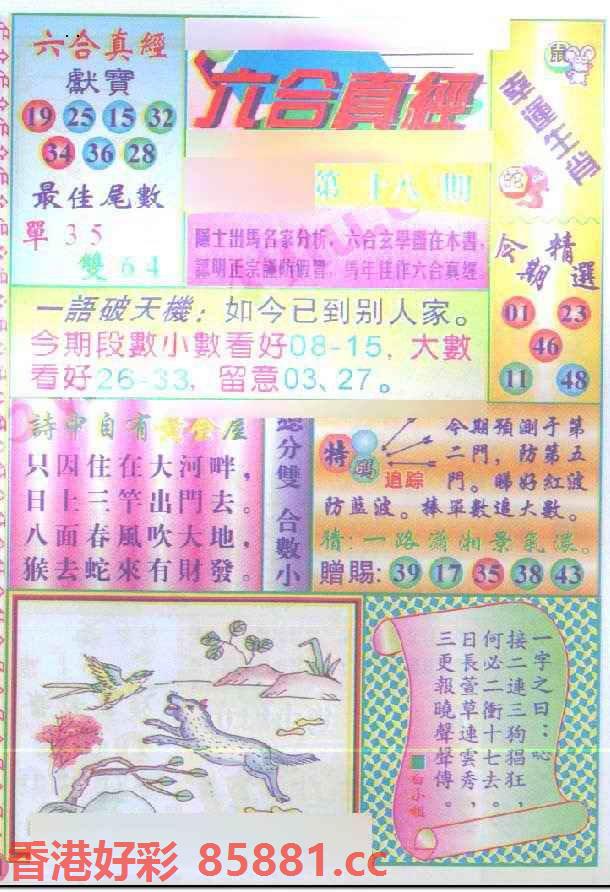 六合真經
獻寶
19 25 15 32
34 36 28
最佳尾數
單 35
雙 64
六合真經
第十八期
隱士出馬名家分析，六合玄學盡在本書，
認明正宗謹防假冒，馬年佳作六合真經。
鼠
幸運生肖
蛇
今期精選
01 23
46
11 48
一語破天機：如今已到别人家。
今期段數小數看好08-15，大數
看好26-33，留意03、27。
詩中自有黃金屋
只因住在大河畔，
日上三竿出門去。
八面春風吹大地，
猴去蛇來有財發。
總分雙 合數小
特碼
追踪
今期預測于第
二門，防第五
門。睇好紅波
防藍波。捧單數追大數。
猜：一路瀟湘景氣濃。
贈賜：39 17 35 38 43
一字之曰：吣
接二連三狗猖狂，
何必二衝十七去。
日長萱草連雲秀，
三更報曉聲聲傳。
白小姐
香港好彩 85881.cc